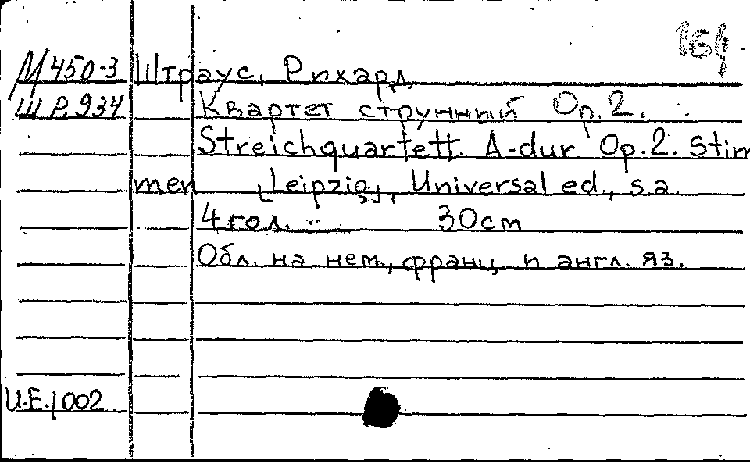 164
М 450-3 Штраус, Рихард
Ш Р.934 Квартет струнный Op.2.
Streichquartett A-dur Op.2. Stim
men [Leipzig], Universal ed., s.a.
4 гол. 30cm
Обл. на нем., франц. и англ. яз.
U.E.1002